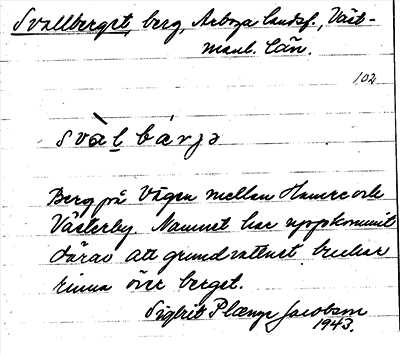 Svallberget, berg, Arboga landsf., Väst-
manl. län.
102
svàl bárjə
Berg på vägen mellan Hamre och
Västerby. Namnet har uppkommit
därav att grundvattnet brukar
rinna över berget.
Sigbrit Plænge Jacobson
1943.